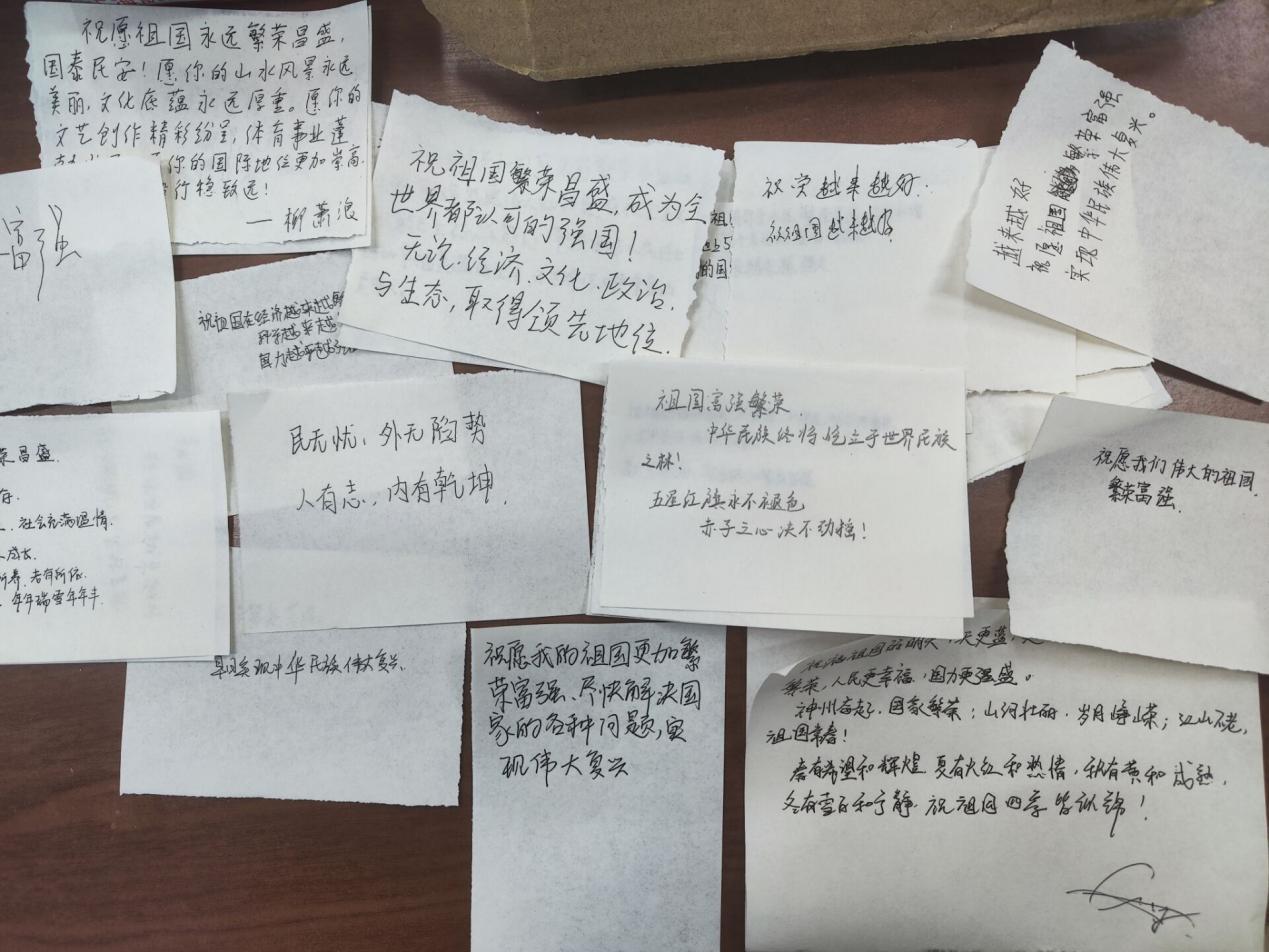 祝愿祖国永远繁荣昌盛,
国泰民安!愿你的山水风景永远
美丽,文化底蕴永远厚重。愿你的
文艺创作精彩纷呈,体育事业蓬
你的国际地位更加崇高
行稳致远!
——柳萧浪
富强
祝祖国在经济越来越
科学越来越
国力越来越
祝祖国繁荣昌盛,成为全
世界都认可的强国!
无论.经济.文化.政治.
与生态,取得领先地位.
祖
的国
越来越好.
祝祖国越来越好.
越来越好
祝愿祖国繁荣富强
实现中华民族伟大复兴。
荣昌盛.
社会充满温情.
成长.
所养.老有所依.
年年瑞雪年年丰.
民无忧,外无陷势
人有志,内有乾坤.
祖国富强繁荣.
中华民族终将屹立于世界民族
之林!
五星红旗永不褪色
赤子之心决不动摇!
祝愿我们伟大的祖国
繁荣富强.
早日实现中华民族伟大复兴.
祝愿我的祖国更加繁
荣富强、尽快解决国
家的各种问题,实
现伟大复兴
祝福祖国的明天,天更蓝,
繁荣,人民更幸福,国力更强盛。
神州奋起,国家繁荣;山河壮丽,岁月峥嵘;江山不老,
祖国常春!
春有希望和辉煌 夏有火红和热情,秋有黄和成熟,
冬有雪白和宁静.祝祖国四季皆似锦!